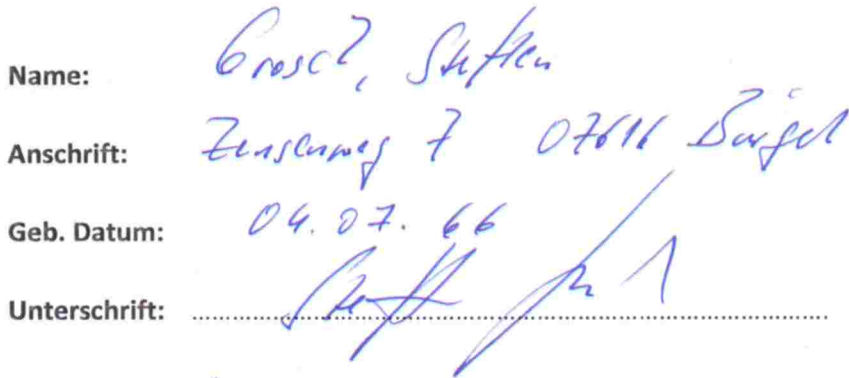 Name: Grosch, Steffen
Anschrift: 7 07616 Bürgel
Geb. Datum: 04.07.66
Unterschrift: